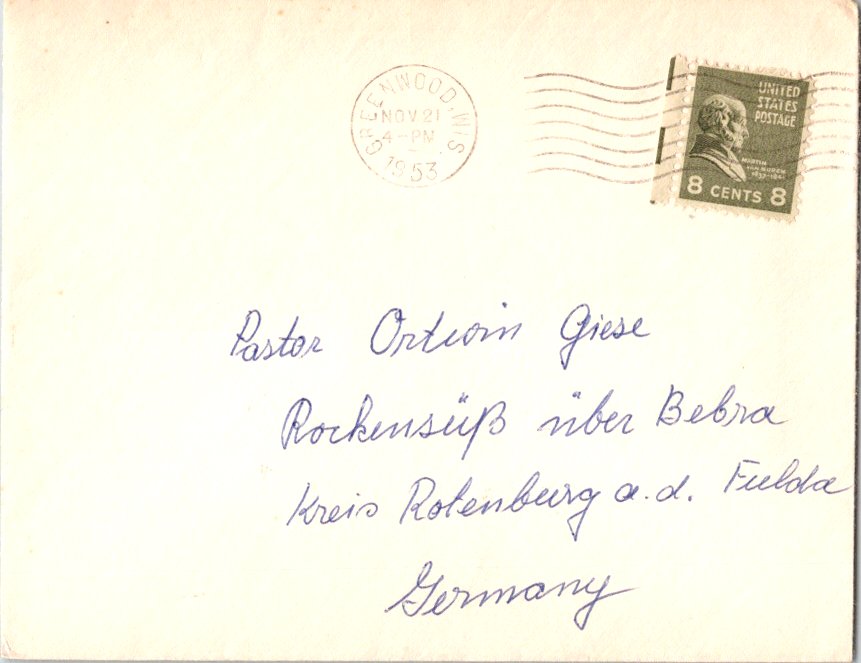 GREENWOOD, WIS.
NOV 21
4-PM
1953
UNITED
STATES
POSTAGE
MARTIN
VAN BUREN
1837-1841
8 CENTS 8
Pastor Ortwin Giese
Rockensüß über Bebra
Kreis Rotenburg a.d. Fulda
Germany